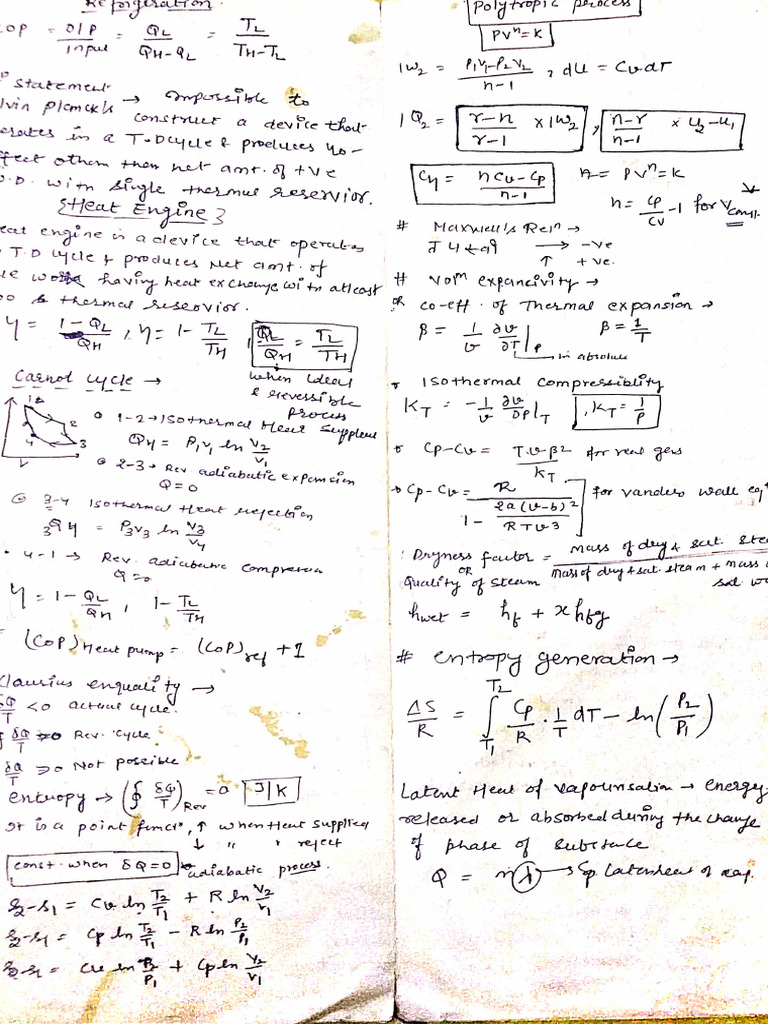 Refrigeration
COP = O/P / input = QL / QH-QL = TL / TH-TL
statement
Planck's → Impossible to
construct a device that
in a T.D cycle & produces no
effect other than net amt. of +ve
W.D. with single thermal reservior.
{Heat Engine}
Heat engine is a device that operates
T.D cycle & produces Net amt. of
work having heat exchange with atleast
& thermal reservior.
η = 1-QL / QH , η = 1- TL / TH , QL / QH = TL / TH
when ideal
& reversible
process
Carnot cycle →
1 2 3 4
1-2 → Isothermal Heat
QH = P1V1 ln V2/V1
2-3 → Rev. adiabatic expansion
Q=0
3-4 Isothermal Heat rejection
3Q4 = P3V3 ln V3/V4
4-1 → Rev. adiabatic
Q=0
η = 1 - QL/QH , 1- TL/TH
(COP) Heat pump = (COP) ref + 1
Clausius enquality →
δQ/T <0 actual cycle.
∮ δQ/T = 0 Rev. cycle
δQ/T >0 Not possible
entropy → (∮ δQ/T) Rev = 0 J/K
It is a point , ↑ when Heat supplied
↓ " " reject
const. when δQ=0 adiabatic process.
S2-S1 = Cv ln T2/T1 + R ln V2/V1
S2-S1 = Cp ln T2/T1 - R ln P2/P1
S2-S1 = Cv ln P2/P1 + Cp ln V2/V1
Polytropic process
PVⁿ=K
1W2 = P1V1-P2V2 / n-1 , dU = CvdT
1Q2 = r-n / r-1 × 1W2 , n-r / n-1 × U2-U1
Cn = nCv-Cp / n-1 PVⁿ=K
n = Cp/Cv -1 for V const.
# Maxwell's Relⁿ →
→ -ve
↑ +ve.
# Volᵐ expancivity →
or co-eff. of Thermal expansion →
β = 1/v ∂v/∂T |P β = 1/T
in absolute
Isothermal compressiblity
KT = -1/v ∂v/∂P |T , KT = 1/P
Cp-Cv = T.v.β² / KT for real gas
Cp-Cv = R / 1 - 2a(v-b)² / RTv3 for wall eqⁿ
Dryness factor = mass of dry & sat. / Mass of dry & sat. steam + mass
OR
Quality of steam
hwet = hf + x hfg
# Entropy generation →
ΔS/R = ∫ T1 T2 Cp/R . 1/T dT - ln (P2/P1)
Latent Heat of vapourisation → energy
released or absorbed during the change
of phase of substance